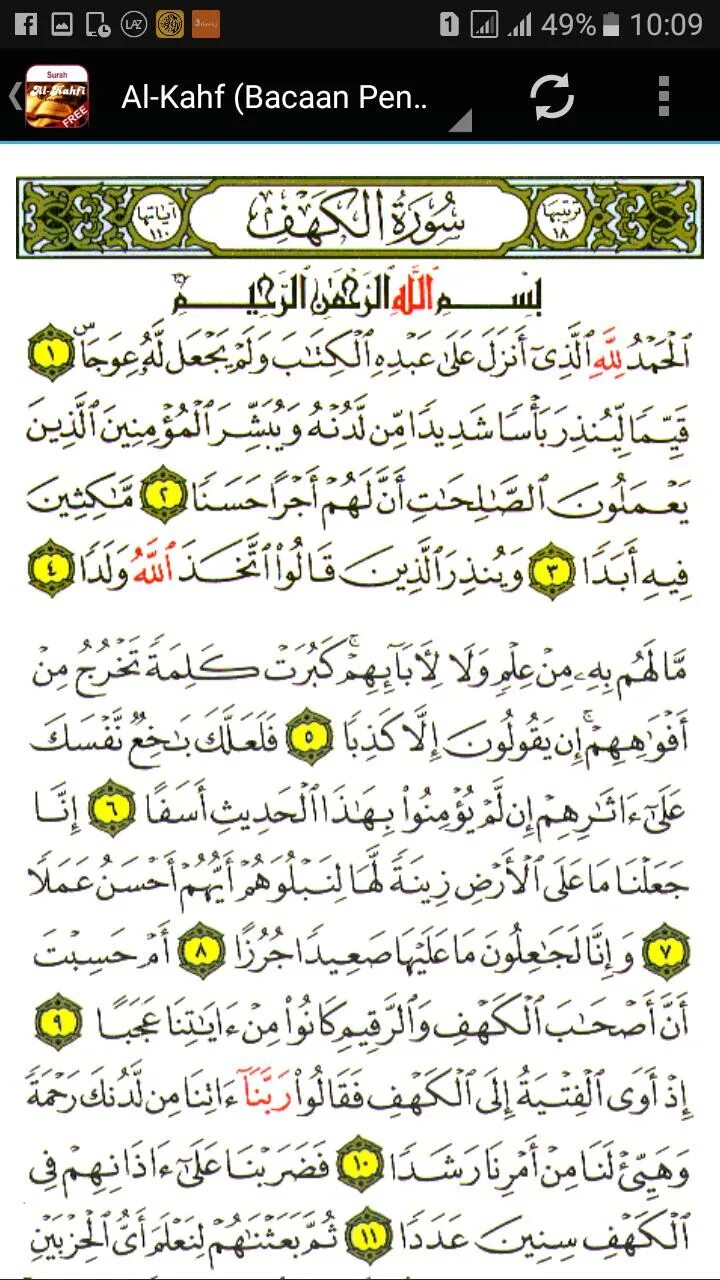 LAZ
1 49% 10:09
Surah
Al-Kahfi
FREE
Al-Kahf (Bacaan Pen..
ترتيبها ١٨ سُورَةُ الكَهْف آياتها ١١٠
بِسْمِ ٱللَّهِ ٱلرَّحْمَٰنِ ٱلرَّحِيمِ
ٱلْحَمْدُ لِلَّهِ ٱلَّذِىٓ أَنزَلَ عَلَىٰ عَبْدِهِ ٱلْكِتَٰبَ وَلَمْ يَجْعَل لَّهُۥ عِوَجَاۜ ١
قَيِّمًا لِّيُنذِرَ بَأْسًا شَدِيدًا مِّن لَّدُنْهُ وَيُبَشِّرَ ٱلْمُؤْمِنِينَ ٱلَّذِينَ
يَعْمَلُونَ ٱلصَّٰلِحَٰتِ أَنَّ لَهُمْ أَجْرًا حَسَنًا ٢ مَّٰكِثِينَ
فِيهِ أَبَدًا ٣ وَيُنذِرَ ٱلَّذِينَ قَالُوا۟ ٱتَّخَذَ ٱللَّهُ وَلَدًا ٤
مَّا لَهُم بِهِۦ مِنْ عِلْمٍ وَلَا لِءَابَآئِهِمْ ۚ كَبُرَتْ كَلِمَةً تَخْرُجُ مِنْ
أَفْوَٰهِهِمْ ۚ إِن يَقُولُونَ إِلَّا كَذِبًا ٥ فَلَعَلَّكَ بَٰخِعٌ نَّفْسَكَ
عَلَىٰٓ ءَاثَٰرِهِمْ إِن لَّمْ يُؤْمِنُوا۟ بِهَٰذَا ٱلْحَدِيثِ أَسَفًا ٦ إِنَّا
جَعَلْنَا مَا عَلَى ٱلْأَرْضِ زِينَةً لَّهَا لِنَبْلُوَهُمْ أَيُّهُمْ أَحْسَنُ عَمَلًا
٧ وَإِنَّا لَجَٰعِلُونَ مَا عَلَيْهَا صَعِيدًا جُرُزًا ٨ أَمْ حَسِبْتَ
أَنَّ أَصْحَٰبَ ٱلْكَهْفِ وَٱلرَّقِيمِ كَانُوا۟ مِنْ ءَايَٰتِنَا عَجَبًا ٩
إِذْ أَوَى ٱلْفِتْيَةُ إِلَى ٱلْكَهْفِ فَقَالُوا۟ رَبَّنَآ ءَاتِنَا مِن لَّدُنكَ رَحْمَةً
وَهَيِّئْ لَنَا مِنْ أَمْرِنَا رَشَدًا ١٠ فَضَرَبْنَا عَلَىٰٓ ءَاذَانِهِمْ فِى
ٱلْكَهْفِ سِنِينَ عَدَدًا ١١ ثُمَّ بَعَثْنَٰهُمْ لِنَعْلَمَ أَىُّ ٱلْحِزْبَيْنِ